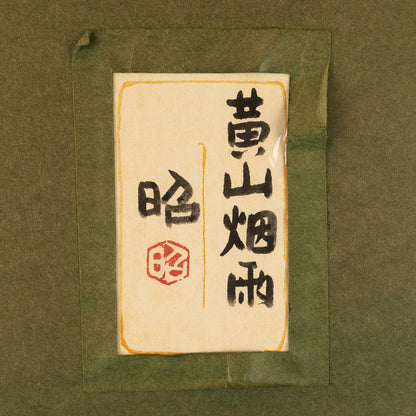 黃山烟雨
昭
昭